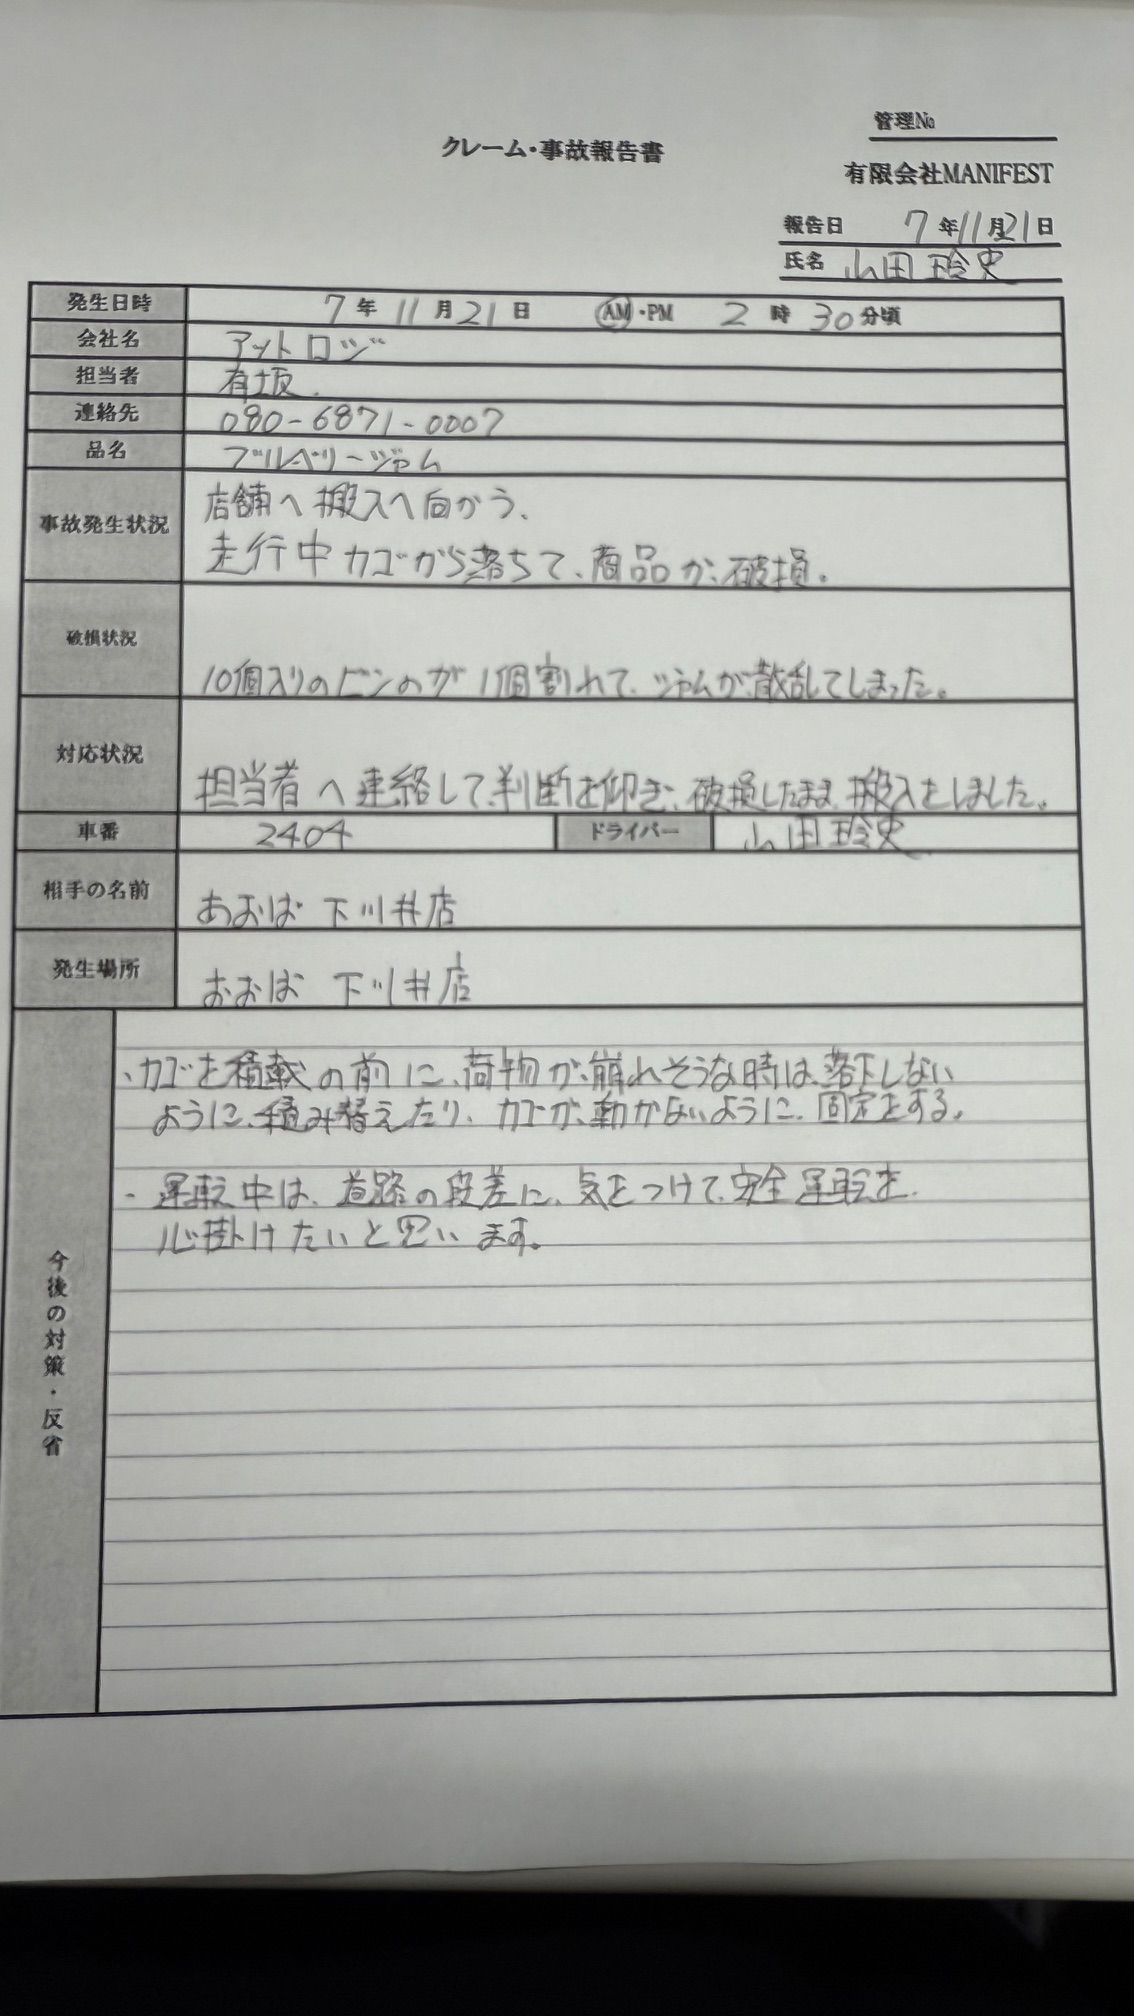 管理No
クレーム・事故報告書
有限会社MANIFEST
報告日 7年11月21日
氏名 山田玲史
発生日時 7年11月21日 AM・PM 2時30分頃
会社名 アットロジ
担当者 有坂.
連絡先 080-6871-0007
品名 ブルベリージャム
事故発生状況 店舗へ搬入へ向かう、
走行中カゴから落ちて、商品が、破損。
破損状況 10個入りのビンのが1個割れて、ジャムが散乱してしまった。
対応状況 担当者へ連絡して、判断を仰ぎ、破損したまま、搬入をしました。
車番 2404 ドライバー 山田玲史
相手の名前 あおば 下川井店
発生場所 おおば 下川井店
今後の対策・反省
・カゴを積載の前に、荷物が、崩れそうな時は、落下しない
ように、積み替えたり、カゴが、動かないように、固定をする。
・運転中は、道路の段差に、気をつけて、安全運転を、
心掛けたいと思います。